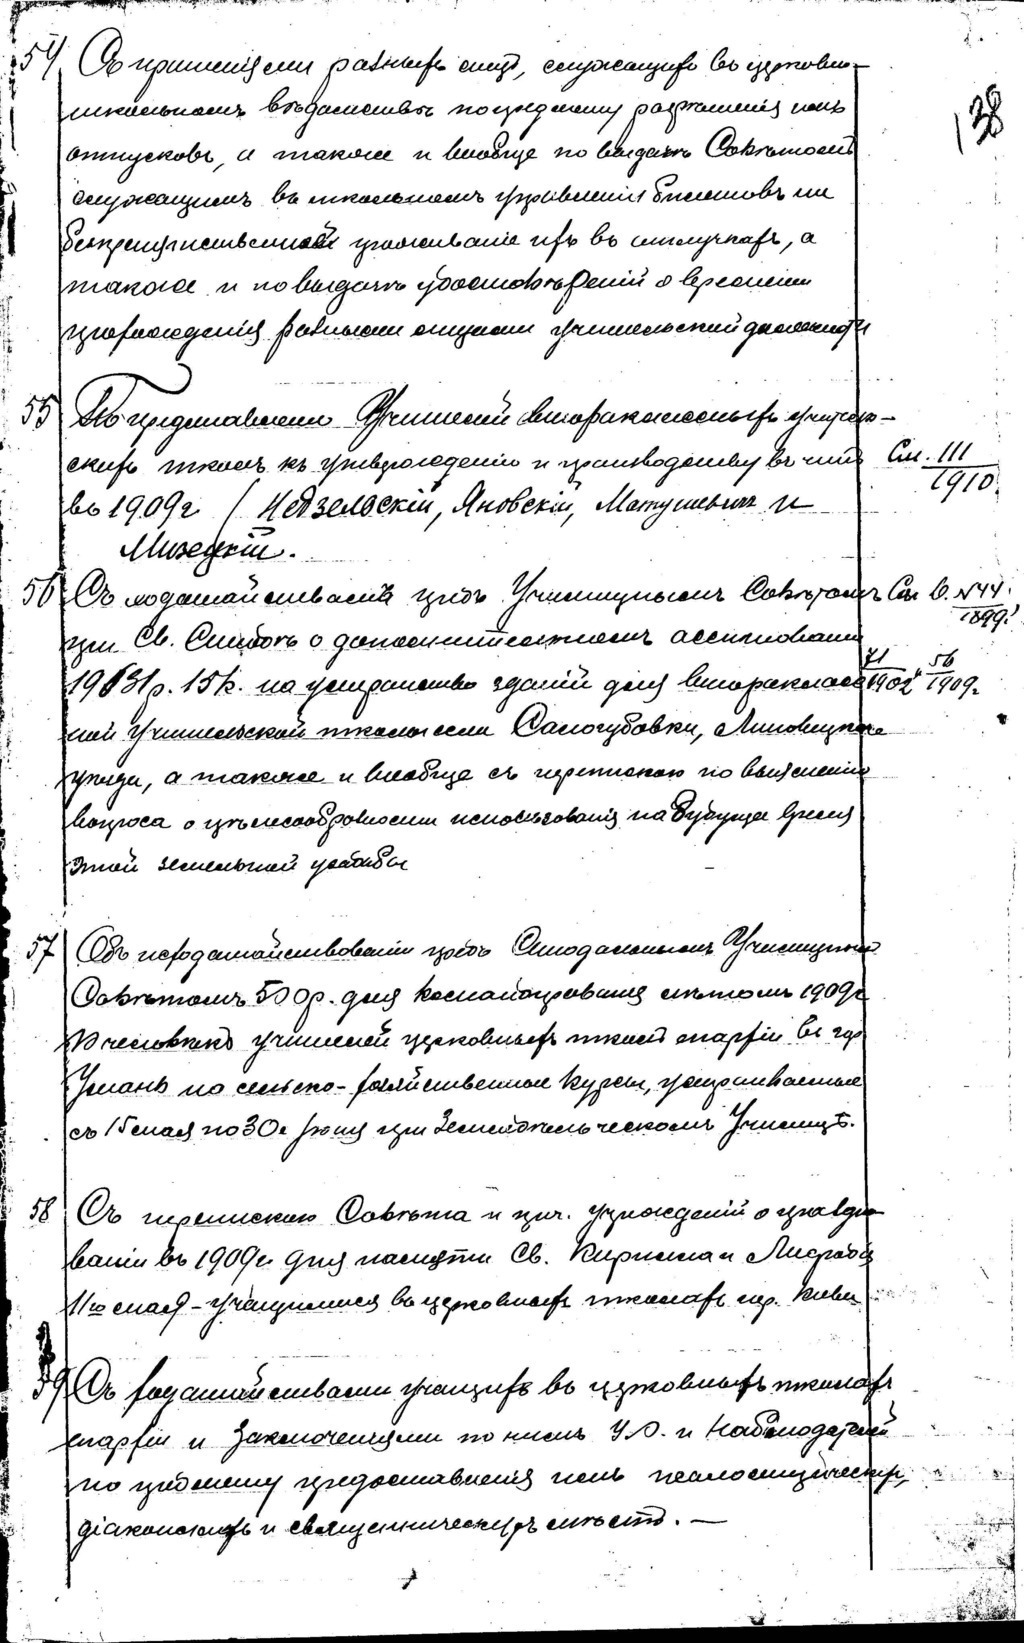 138
54) Съ прошеніями разныхъ лицъ, служащихъ въ церковно-
школьномъ вѣдомствѣ по предмету разрѣшенія имъ
отпусковъ, а также и вообще по выдачѣ Совѣтомъ
служащимъ въ школьномъ управленіи билетовъ на
безпрепятственное проживаніе ихъ въ отлучкахъ, а
также и по выдачѣ удостовѣреній о времени
прохожденія разными лицами учительскихъ должностей
55 По представленію Учителей второклассныхъ учитель-
скихъ школъ къ утвержденію и производству въ чинъ
въ 1909 г (Недзельскій, Яновскій, Матушевич и
Мизецкій.
См. 111
1910.
56 Съ ходатайствами предъ Училищнымъ Совѣтомъ
при Св. Синодѣ о дополнительномъ ассигнованіи
19631 р. 15 к. на устройство зданій для второкласс
ной Учительской школы села Салогубовки, Липовецкаго
уѣзда, а также и вообще съ перепискою по выясненію
вопроса о цѣлесообразности использованія на будущее время
этой земельной усадьбы
См. В. № 44.
1899 г.
71
1902
56
1909 г.
57 Объ исходатайствованіи предъ Синодальнымъ Училищнымъ
Совѣтомъ 500 р. для командированія лѣтомъ 1909 г
10 человѣкъ учителей церковныхъ школъ епархіи въ гор
Умань на сельско-хозяйственные курсы, устраиваемые
съ 15 мая по 30 Іюня при Земледѣльческомъ Училищѣ.
58 Съ перепискою Совѣта и проч. учрежденій о празднo
ваніи въ 1909 г дня памяти Св. Кирилла и Меѳодія
11го мая - учащимися въ церковныхъ школахъ гор. Кіева
59 Съ ходатайствами учащихъ въ церковныхъ школахъ
епархіи и заключеніями по нимъ У. О. и Наблюдателей
по предмету предоставленія имъ псаломщическихъ,
діаконскихъ и священническихъ мѣстъ. —